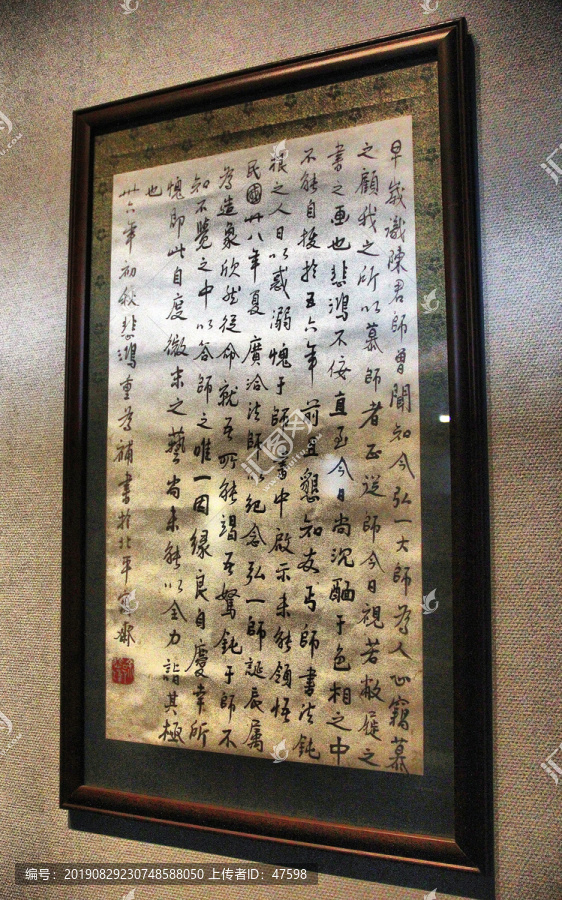 早歲識陳君師曾聞知今弘一大師為人心竊慕
之顧我之所以慕師者正從師今日視若敝屣之
書之畫也悲鴻不佞直至今日尚沉酣于色相之中
不能自拔於五六年前且懇知友丐師書法鈍
根之人日以惑溺愧于師書中啟示未能領悟
民國卅八年夏廣洽法師以紀念弘一師誕辰屬
為造象欣然從命就吾所能竭吾駑鈍于師不
知不覺之中以答師之唯一因緣良自慶幸所
愧即此自度微末之藝尚未能以全力詣其極
也
卅六年初秋悲鴻重為補書於北平寓齋
汇图网
编号: 20190829230748588050 上传者ID: 47598